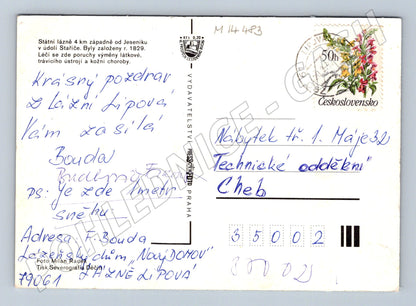 Státní lázně 4 km západně od Jeseníku
v údolí Staříče. Byly založeny r. 1829.
Léčí se zde poruchy výměny látkové,
trávicího ústrojí a kožní choroby.
Krásný pozdrav
z lázní Lipová
Vám zasílá
Bouda
ps. je zde 1 metr
sněhu.
Adresa F. Bouda
Lázeňský dům „Nový DOMOV"
79061 LÁZNĚ LIPOVÁ
Foto Milan Rapek
Tisk Severografia Děčín
VYDAVATELSTVÍ
PRAHA
M 14483
50h
Československo
Nábytek tř. 1. Máje 32
Technické oddělení
Cheb
35002
35002
POHLEDNICE - CECH